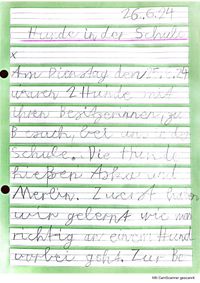 26.6.24
Hunde in der Schule
x
Am Dienstag den 25.6.24
waren 2 Hunde mit
ihren Besitzerinnen, zu
Besuch, bei uns in der
Schule. Die Hunde
hießen Aska und
Merlin. Zuerst haben
wir gelernt wie man
richtig an einem Hund
vorbei geht. Zur Be
Mit CamScanner gescannt